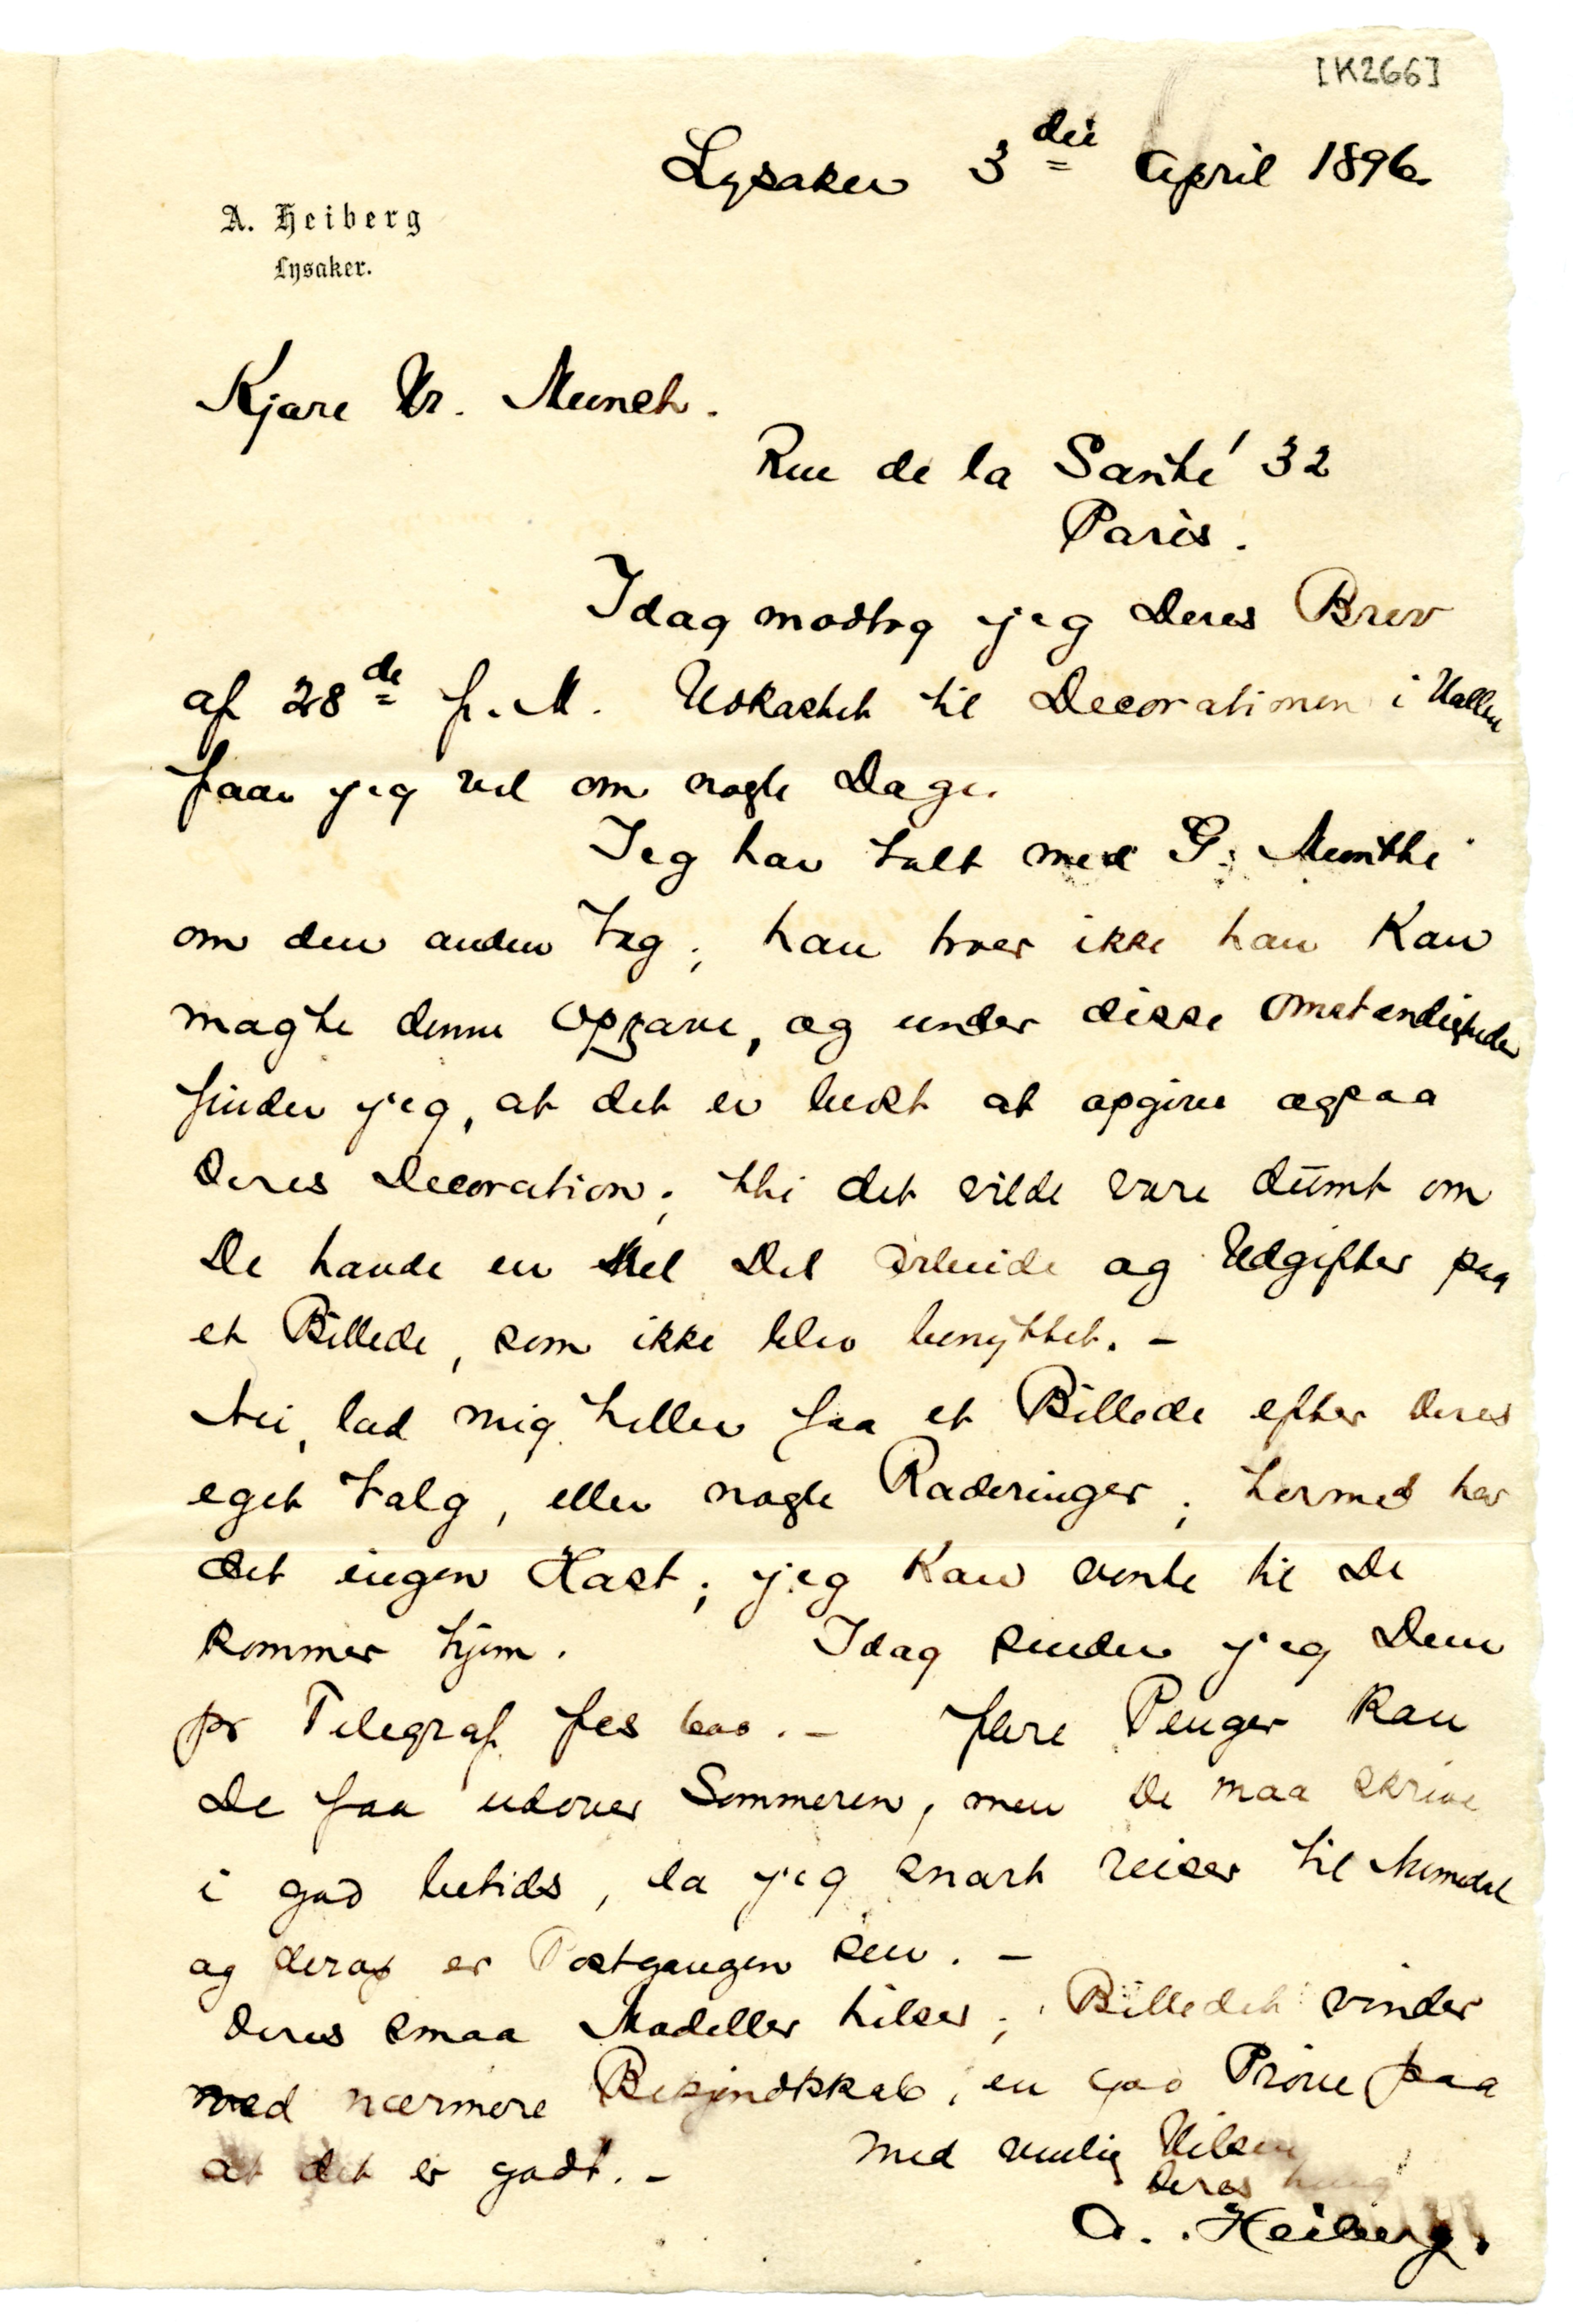 [K266]
Lysaker 3die April 1896.
A. Heiberg
Lysaker.
Kjære Hr. Munch.
Rue de la Santé 32
Paris.
Idag modtog jeg Deres Brev
af 28de f. M. Udkastet til Decorationen i Hallen
faar jeg vel om nogle Dage.
Jeg har talt med G. Munthe
om den anden Væg; han troer ikke han kan
magte denne Opgave, og under disse Omstændigheder
finder jeg, at det er bedst at opgive ogsaa
Deres Decoration; thi det vilde være dumt om
De havde en Del Arbeide og Udgifter paa
et Billede, som ikke blev benyttet. –
Nei, lad mig heller faa et Billede efter Deres
eget Valg, eller nogle Raderinger; hermed har
det ingen Hast; jeg kan vente til De
kommer hjem. Idag sender jeg Dem
pr Telegraf fcs . – flere Penger kan
De faa udover Sommeren, men De maa skrive
i god betids, da jeg snart reiser til Numedal
og er Postgangen sen. –
Deres smaa Modeller hilser; Billedet vinder
ved nærmere Bekjendtskab, en god Prøve paa
at det er godt. – Med venlig Hilsen
Deres
A. Heiberg.